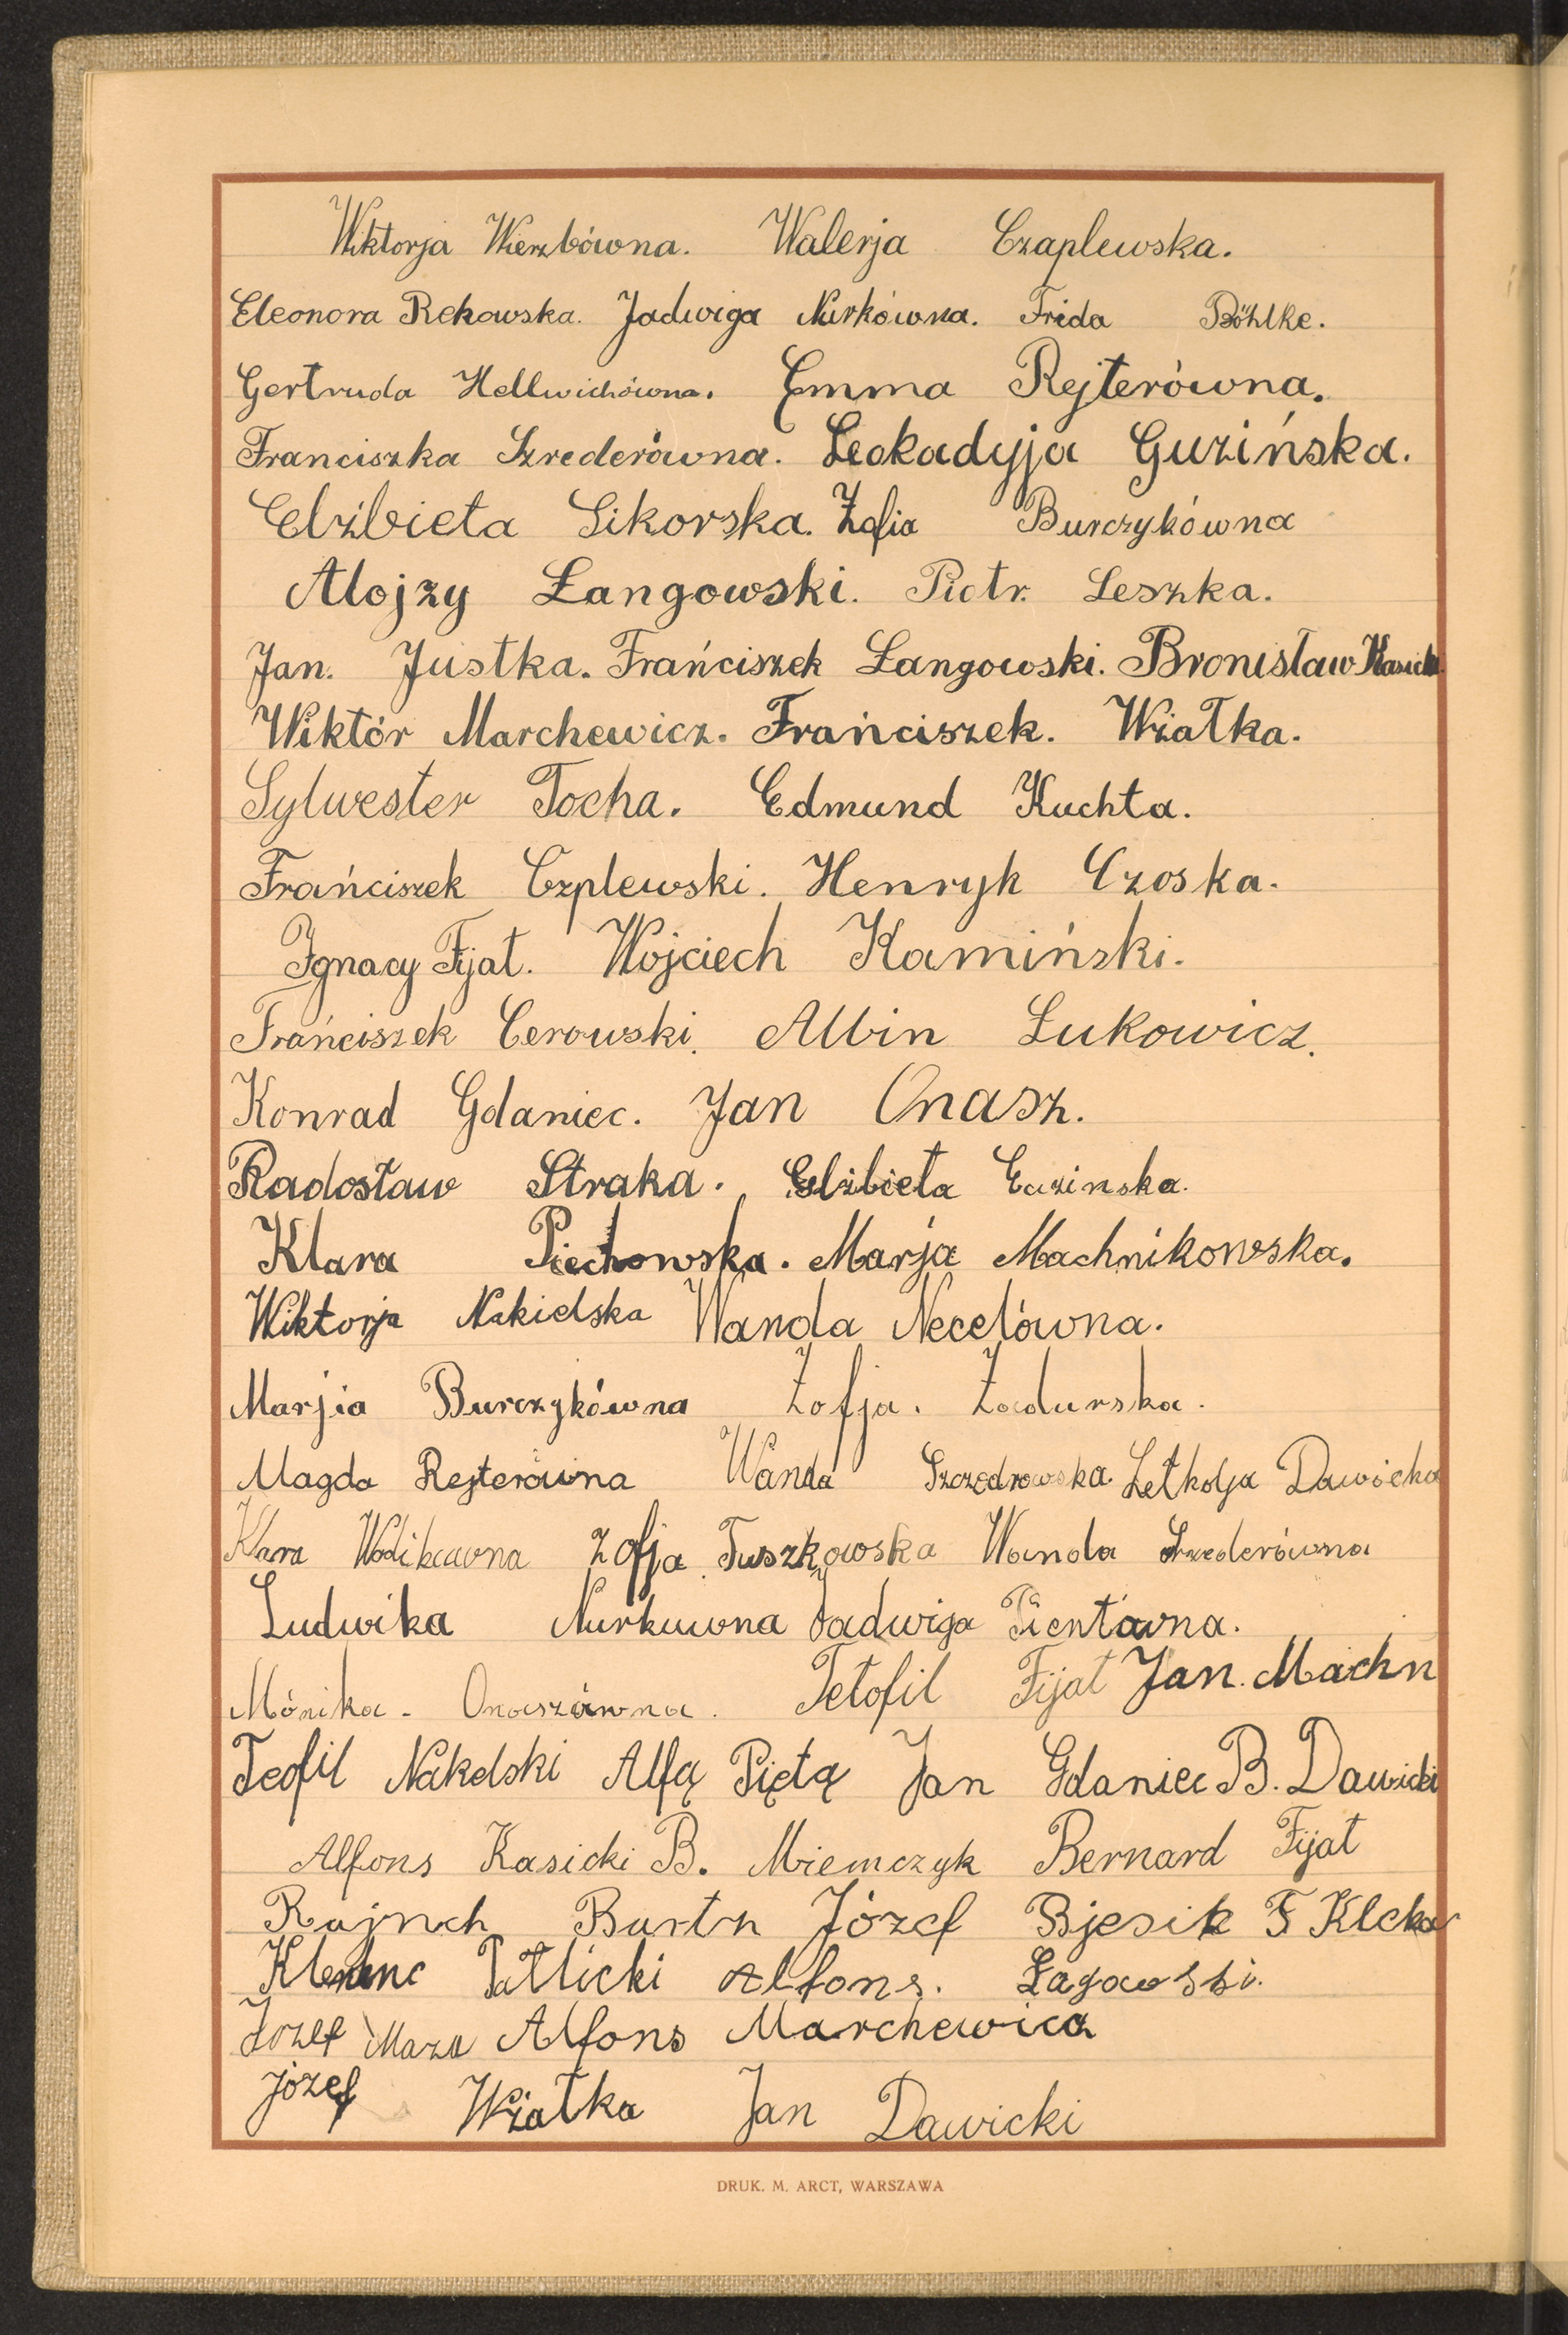 Wiktorja Wierzbówna. Walerja Czaplewska.
Eleonora Rekowska. Jadwiga Nurkówna. Frida Böhlke.
Gertruda Hellwichówna. Emma Rejterówna.
Franciszka Szrederówna. Leokadyja Guzińska.
Elżbieta Sikorska. Zofia Burczykówna
Alojzy Łangowski. Piotr. Leszka.
Jan. Justka. Frańciszek Langowski. Bronisław Kasicki.
Wiktór Marchewicz. Frańciszek. Wżatka.
Sylwester Tocha. Edmund Kuchta.
Frańciszek Czplewski. Henryk Czoska.
Ignacy Fijat. Wojciech Kamiński.
Frańciszek Cerowski. Albin Łukowicz.
Konrad Gdaniec. Jan Onasz.
Radosław Straka. Elżbieta
Klara Piechowska. Marja Machnikowska.
Wiktorja Nakielska Wanda Necelówna.
Marjia Burczykówna Zofja. Zadurska.
Magda Rejterówna Wanda Szczedrowska. Dawicka
Klara Zofja Tuszkowska Wanda Szrederówna
Ludwika Nurkuwna Jadwiga
Mónika. Onaszówna. Tetofil Fijat Jan. Machn
Teofil Nakelski Alfą Piętą Jan Gdaniec B. Dawicki
Alfons Kasicki B. Miemczyk Bernard Fijat
Rajnch Burtn Józef Bjesik F Kleka
Patlicki Alfons. Łagowski.
Jozef Mazu Alfons Marchewicz
Józef Wżatka Jan Dawicki
DRUK. M. ARCT, WARSZAWA